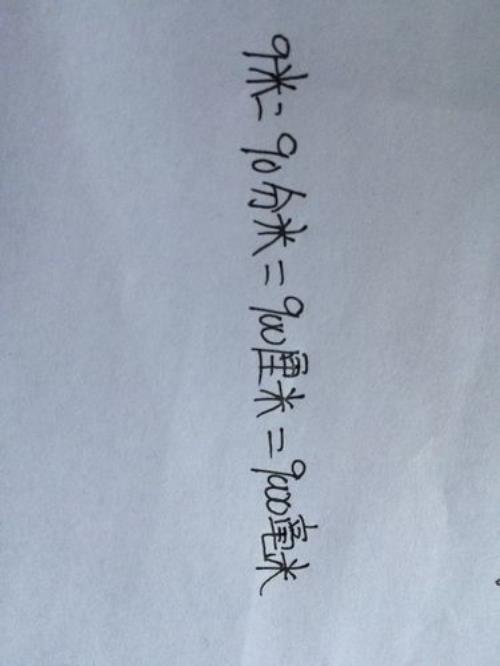 9米=90分米=900厘米=9000毫米